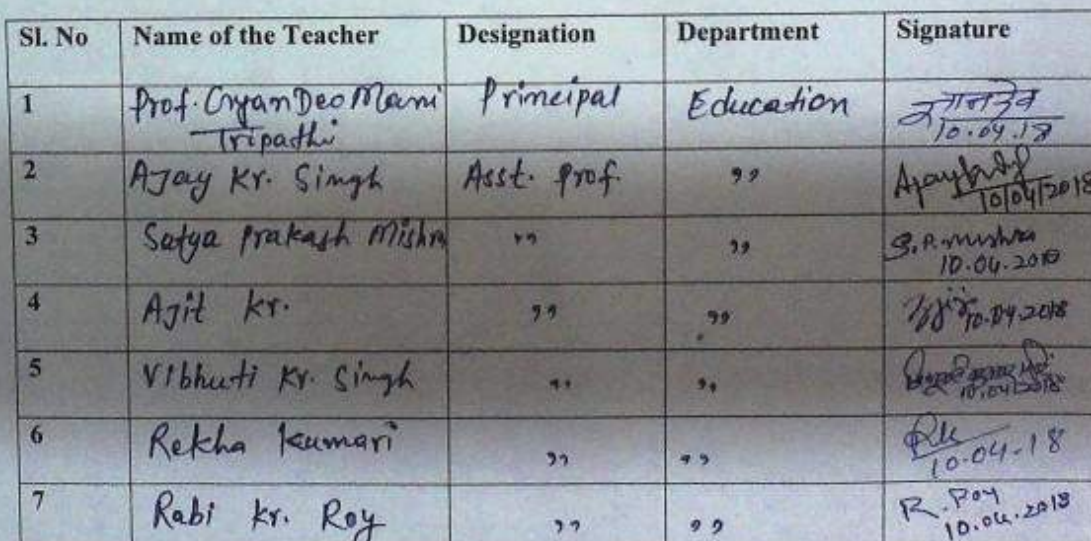 Sl. No Name of the Teacher Designation Department Signature
1 Prof. Gyan Deo Mani Principal Education ज्ञानदेव
Tripathi 10.04.18
2 AJay Kr. Singh Asst. Prof. ,, Ajay
10/04/2018
3 Satya Prakash Mishra ,, ,, S.P. Mishra
10.04.2018
4 AJit Kr. ,, ,, 10.04.2018
5 Vibhuti Kr. Singh ,, ,,
10.04.2018
6 Rekha Kumari ,, ,, RK
10-04-18
7 Rabi Kr. Roy ,, ,, R. Roy
10.04.2018